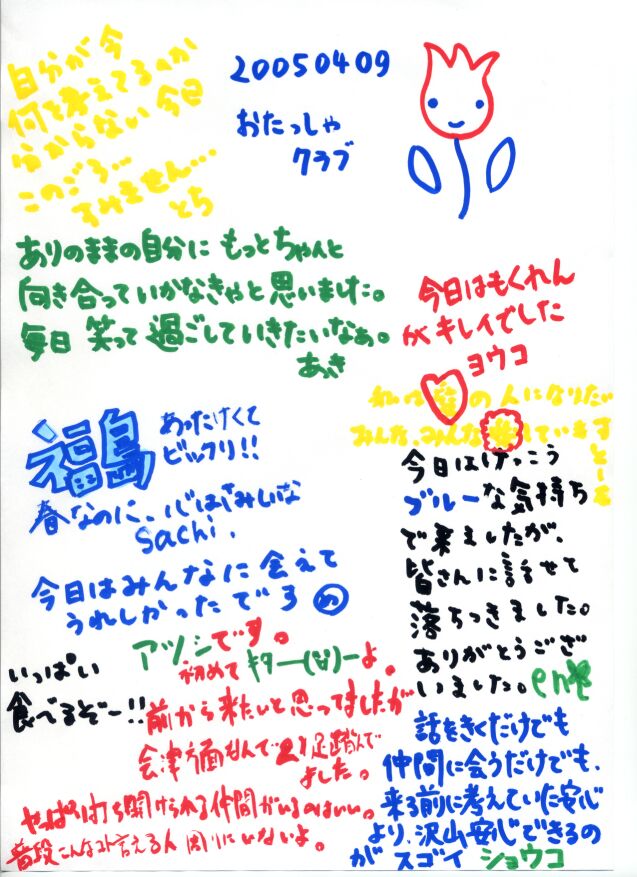 20050409
おたっしゃ
クラブ
自分が今
何を考えてるのか
分からない今日
このごろ…
すみません…
とち
ありのままの自分に もっとちゃんと
向き合っていかなきゃと思いました。
毎日 笑って過ごしていきたいなぁ。
あっき
今日はもくれん
がキレイでした
ヨウコ
私は の人になりたい
みんな、みんな しています
福島 あったけくて
ビックリ!!
春なのに、心はさみしいな
sachi.
今日はけっこう
ブルーな気持ち
で来ましたが、
皆さんに話せて
落ちつきました。
ありがとうござ
いました。
今日はみんなに会えて
うれしかったです め
いっぱい
食べるぞー!!
アツシです。
初めて キター(∀)ーよ。
前から来たいと思ってましたが
会津方面なんで 足踏んで
ました。
やっぱり打ち開けられる仲間がいるのはいい。
普段こんなこと言える人 周りにいないよ。
話をきくだけでも
仲間に会うだけでも、
来る前に考えていた安心
より、沢山安心できるの
が スゴイ ショウコ